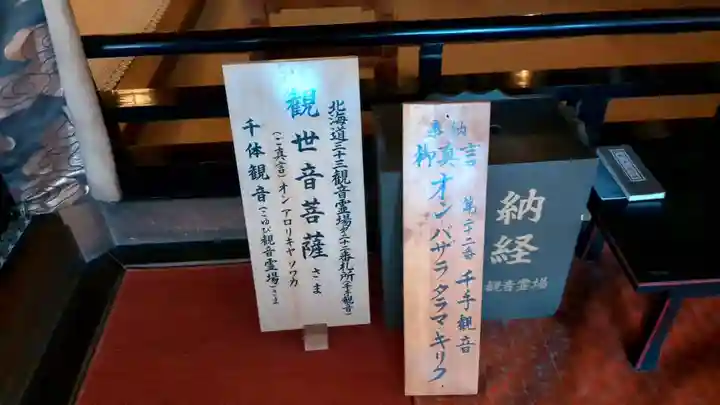 北海道三十三観音霊場第二十二番札所(千手観音)
観世音菩薩さま
(ご真言)オン アロリキヤソワカ
千体観音(こゆび観音霊場)さま
奉納
御真言
第二十二番 千手観音
オンバザラタラマキリク
納経
観音霊場